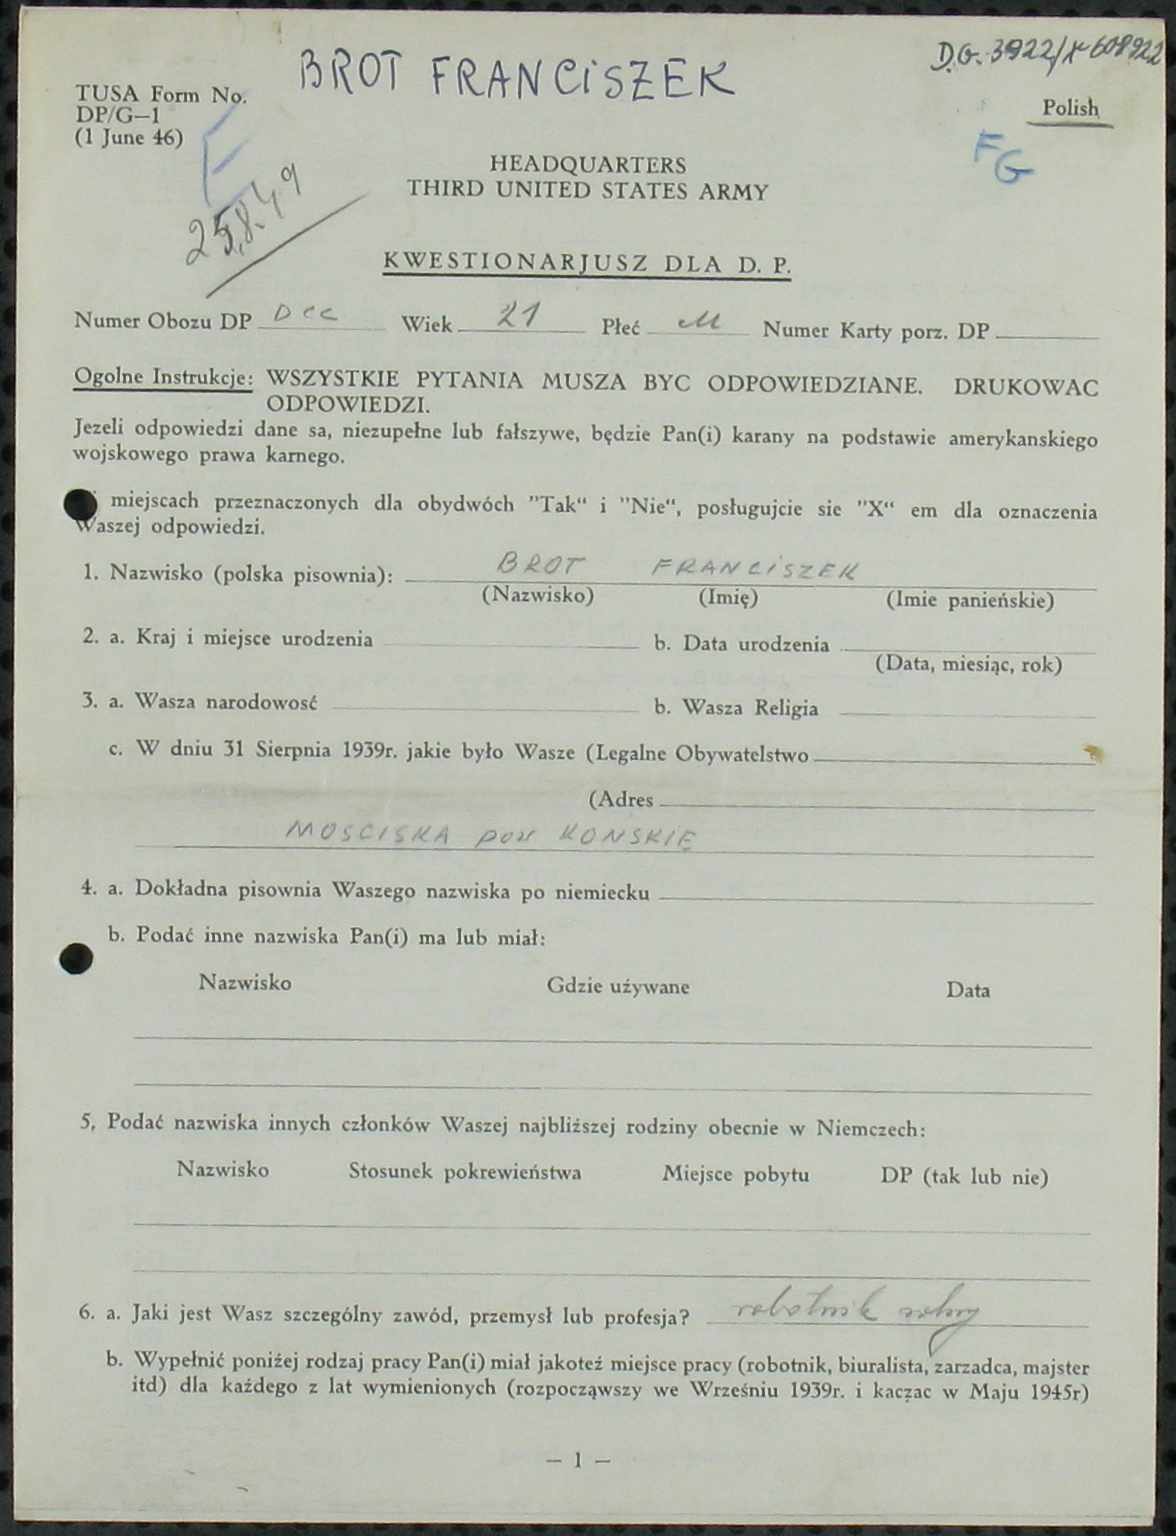 BROT FRANCISZEK
D.G. 3922/
TUSA Form No.
DP/G—1
(1 June 46)
Polish
F
FG
25.8.49
HEADQUARTERS
THIRD UNITED STATES ARMY
KWESTIONARJUSZ DLA D. P.
Numer Obozu DP DCC Wiek 21 Płeć M Numer Karty porz. DP
Ogolne Instrukcje: WSZYSTKIE PYTANIA MUSZA BYC ODPOWIEDZIANE. DRUKOWAC
ODPOWIEDZI.
Jezeli odpowiedzi dane sa, niezupełne lub fałszywe, będzie Pan(i) karany na podstawie amerykanskiego
wojskowego prawa karnego.
miejscach przeznaczonych dla obydwóch "Tak“ i "Nie“, posługujcie sie "X“ em dla oznaczenia
Waszej odpowiedzi.
1. Nazwisko (polska pisownia): BROT FRANCISZEK
(Nazwisko) (Imię) (Imie panieńskie)
2. a. Kraj i miejsce urodzenia b. Data urodzenia
(Data, miesiąc, rok)
3. a. Wasza narodowosć b. Wasza Religia
c. W dniu 31 Sierpnia 1939r. jakie było Wasze (Legalne Obywatelstwo
(Adres
MOSCISKA pow KONSKIE
4. a. Dokładna pisownia Waszego nazwiska po niemiecku
b. Podać inne nazwiska Pan(i) ma lub miał:
Nazwisko Gdzie używane Data
5, Podać nazwiska innych członków Waszej najbliższej rodziny obecnie w Niemczech:
Nazwisko Stosunek pokrewieństwa Miejsce pobytu DP (tak lub nie)
6. a. Jaki jest Wasz szczególny zawód, przemysł lub profesja? robotnik rolny
b. Wypełnić poniżej rodzaj pracy Pan(i) miał jakoteż miejsce pracy (robotnik, biuralista, zarzadca, majster
itd) dla każdego z lat wymienionych (rozpocząwszy we Wrześniu 1939r. i kaczac w Maju 1945r)
— 1 —